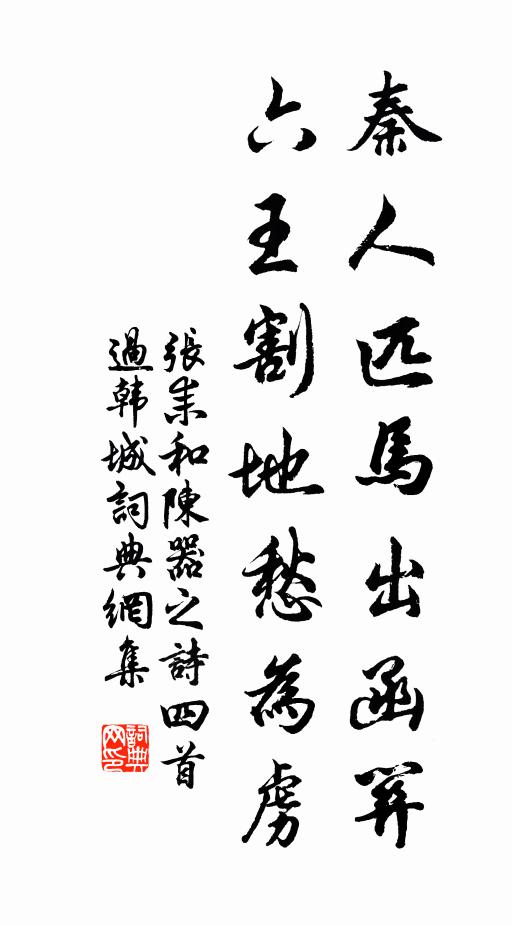 秦人匹馬出函關
六王割地愁為虜
張耒和陳器之詩四首
過韩城詞典網集
詞典网印